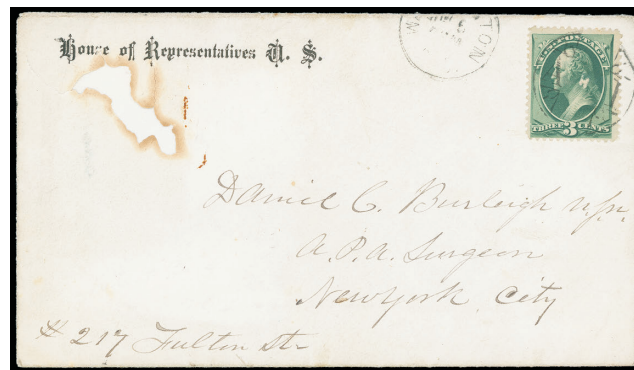 House of Representatives U. S.
U.S. POSTAGE
THREE 3 CENTS
Daniel C. Burleigh
A. P. A. Surgeon
New York City
# 217 Fulton St.